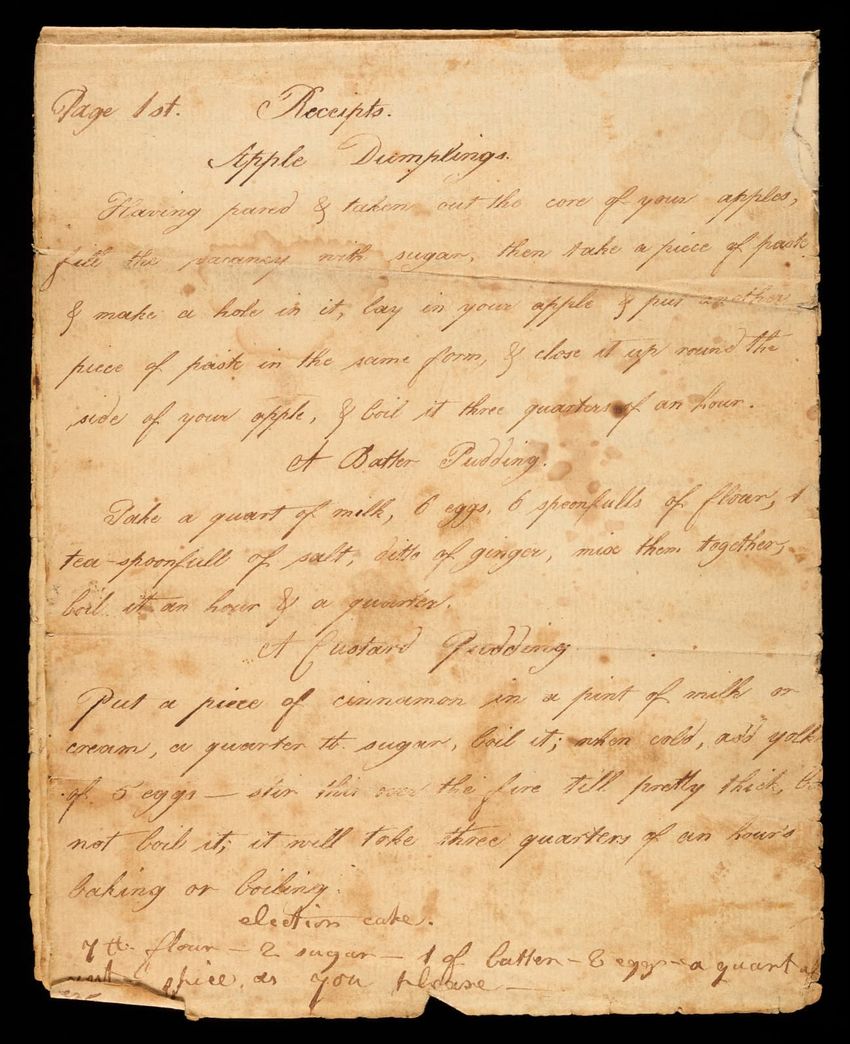 Page 1st. Receipts.
Apple Dumplings.
Having pared & taken out the core of your apples,
fill the vacancy with sugar, then take a piece of paste
& make a hole in it, lay in your apple & put another
piece of paste in the same form, & close it up round the
side of your apple, & boil it three quarters of an hour.
A Batter Pudding.
Take a quart of milk, 6 eggs, 6 spoonfulls of flour, 1
tea-spoonfull of salt, ditto of ginger, mix them together,
boil it an hour & a quarter.
A Custard Pudding
Put a piece of cinnamon in a pint of milk or
cream, a quarter lb. sugar, boil it; when cold, add yolk
of 5 eggs — stir this over the fire till pretty thick,
not boil it; it will take three quarters of an hour's
baking or boiling.
election cake.
7 lb flour — 2 sugar — 1 of butter — 8 eggs — a quart of
spice, as you please —